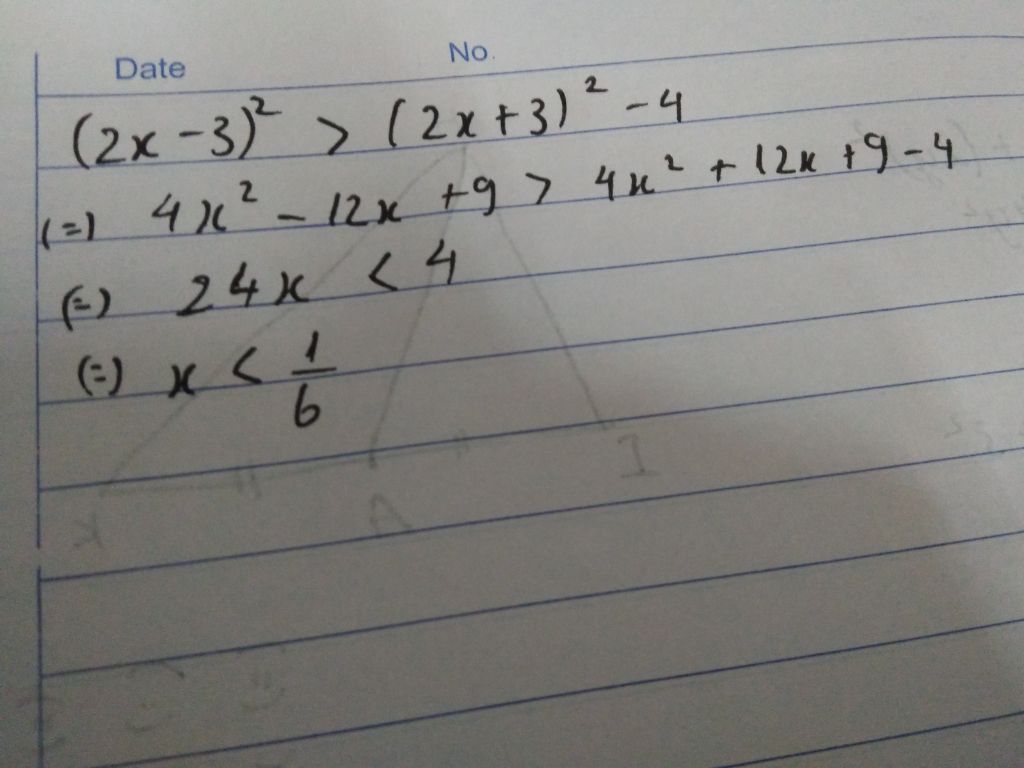 Date No.
(2x-3)² > (2x+3)² - 4
(=) 4x² - 12x + 9 > 4x² + 12x + 9 - 4
(=) 24x < 4
(=) x < 1/6
K A I